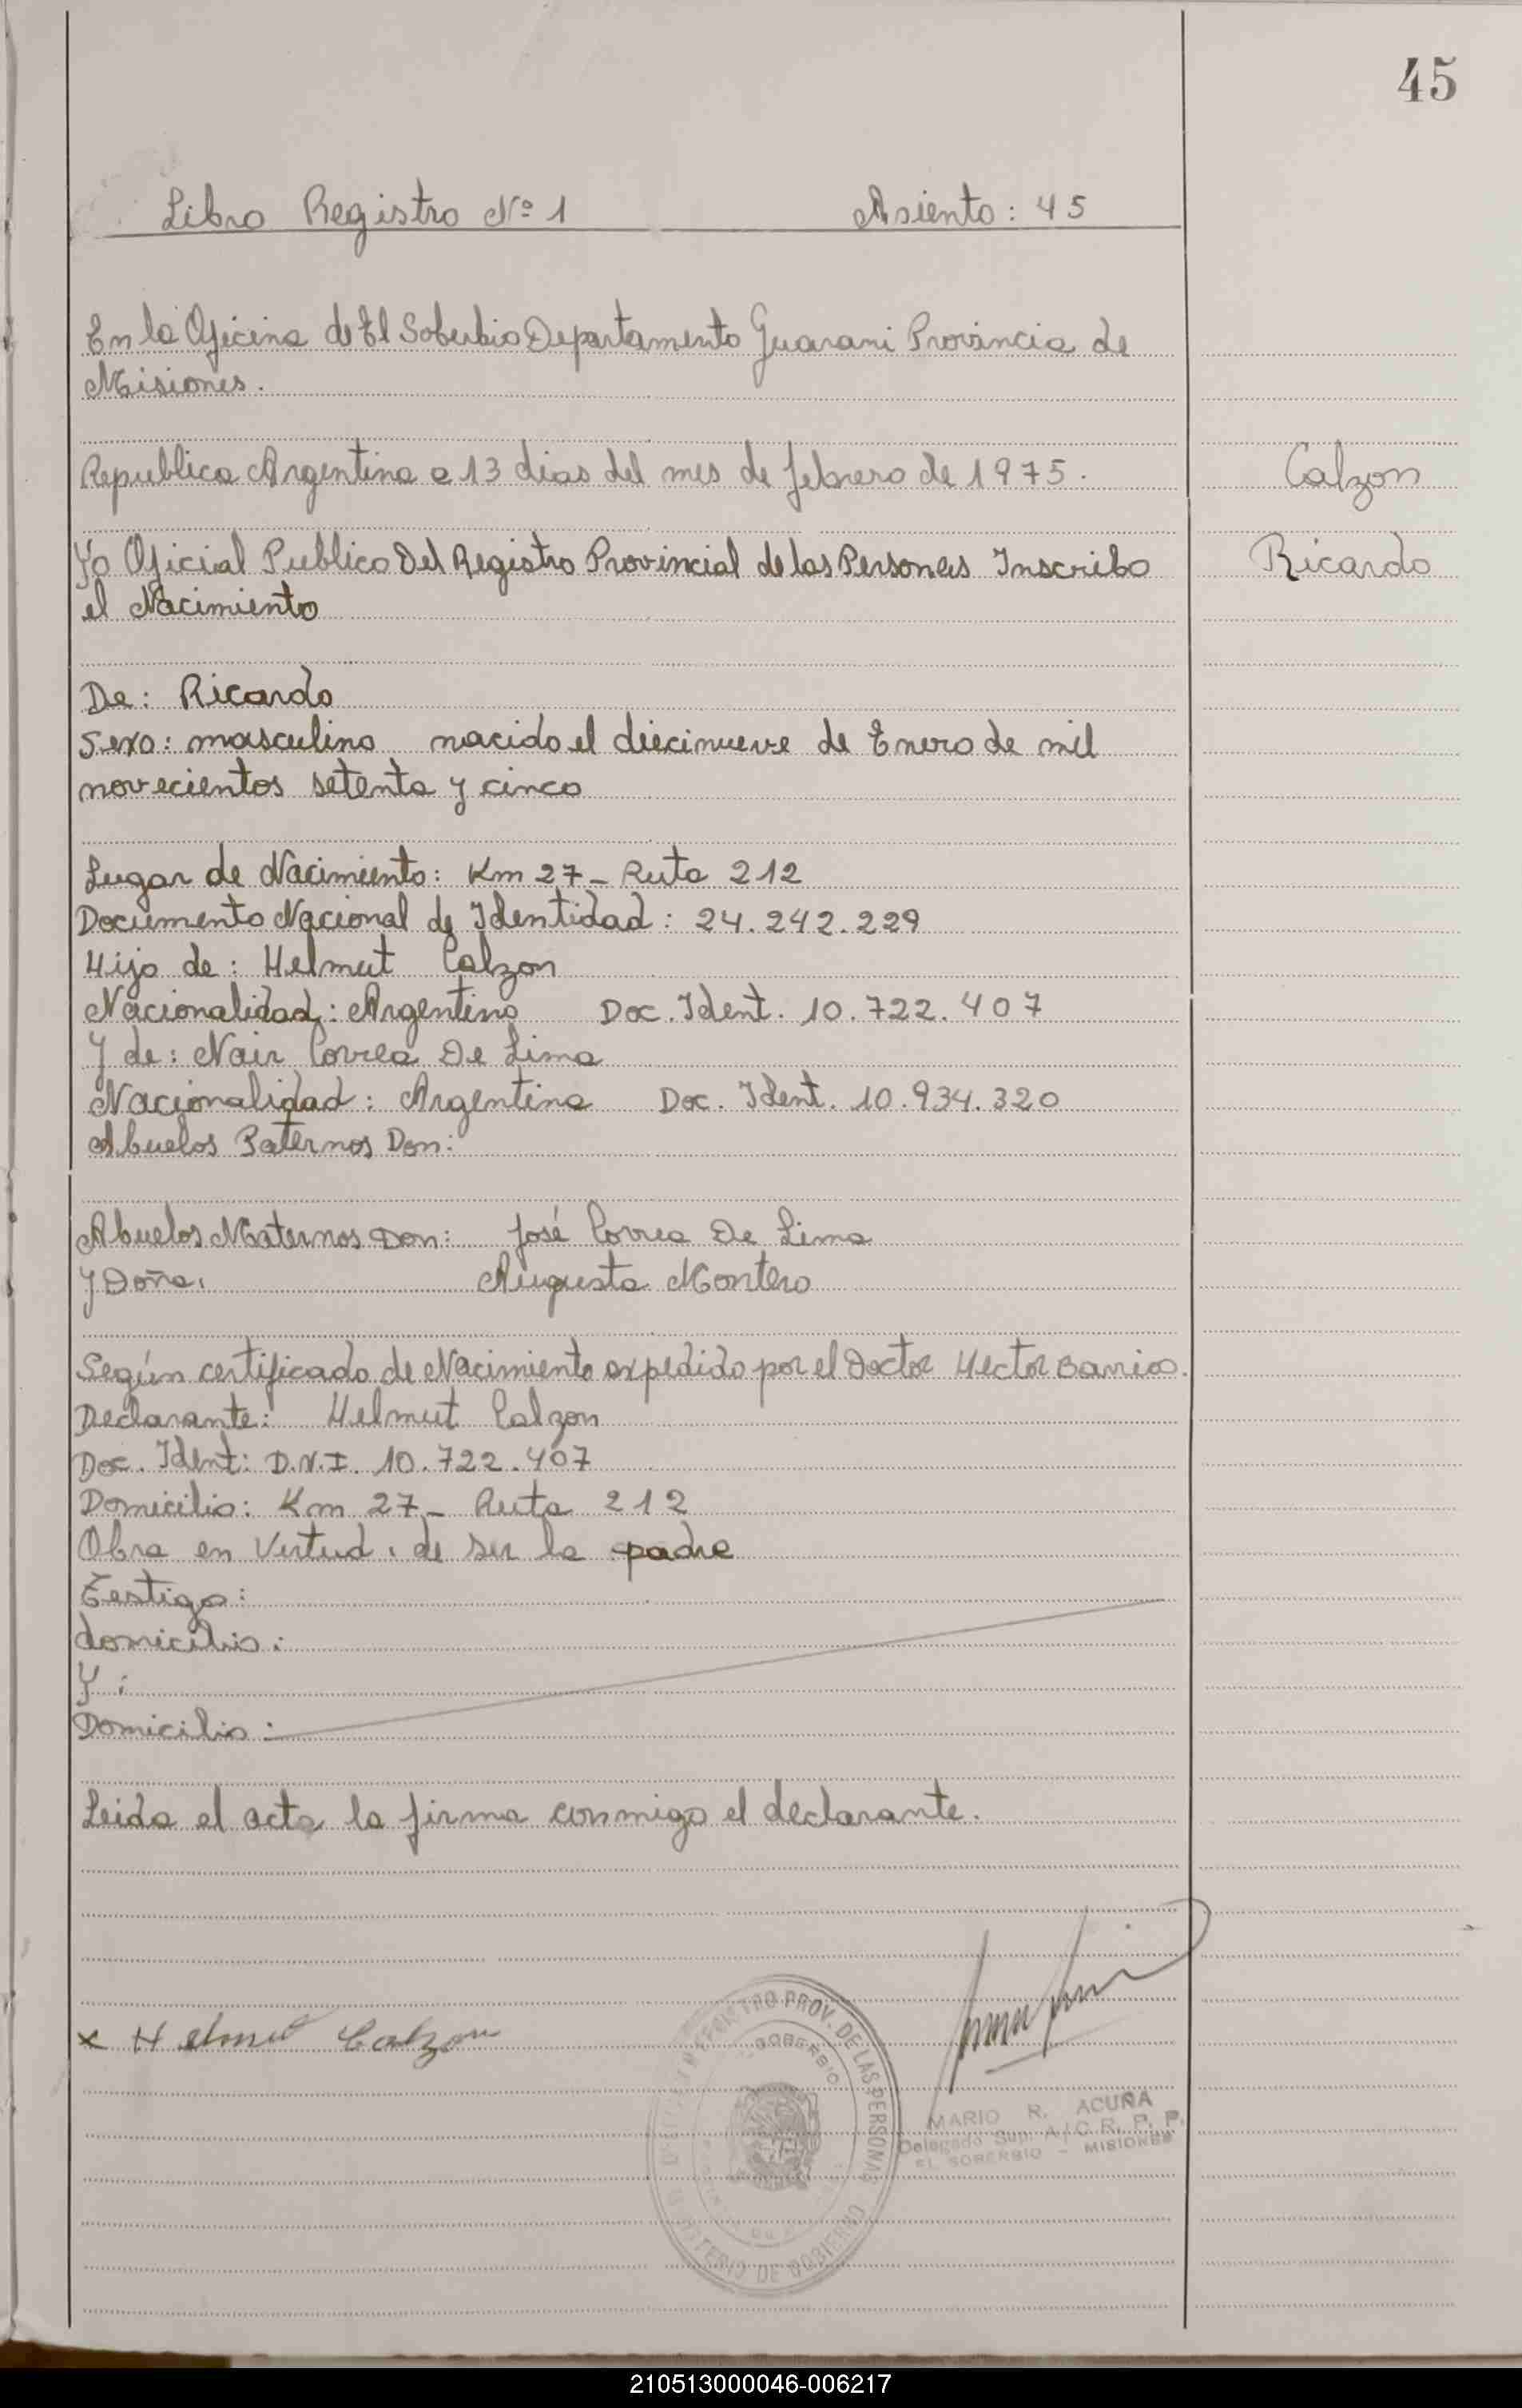 45
Libro Registro Nº 1 Asiento: 45
En la Oficina de El Soberbio Departamento Guarani Provincia de
Misiones.
Republica Argentina a 13 dias del mes de febrero de 1975.
Calzon
Yo Oficial Publico Del Registro Provincial de las Personas Inscribo
Ricardo
el Nacimiento
De: Ricardo
Sexo: masculino nacido el diecinueve de Enero de mil
novecientos setenta y cinco
Lugar de Nacimiento: Km 27 - Ruta 212
Documento Nacional de Identidad: 24.242.229
Hijo de: Helmut Calzon
Nacionalidad: Argentino Doc. Ident. 10.722.407
Y de: Nair Correa De Lima
Nacionalidad: Argentina Doc. Ident. 10.934.320
Abuelos Paternos Don:
Abuelos Maternos Don: José Correa De Lima
Y Doña. Augusta Montero
Según certificado de Nacimiento expedido por el Doctor Hector Barrios.
Declarante: Helmut Calzon
Doc. Ident: D.N.I. 10.722.407
Domicilio: Km 27 - Ruta 212
Obra en Virtud. de ser la padre
Testigo:
domicilio:
Y:
Domicilio:
Leida el acta la firma conmigo el declarante.
x Helmut Calzon
PROV. DE LAS PERSONAS
SOBERBIO
DE GOBIERNO
MARIO R. ACUÑA
Delegado Sup. A/C R. P. P.
EL SOBERBIO - MISIONES
210513000046-006217